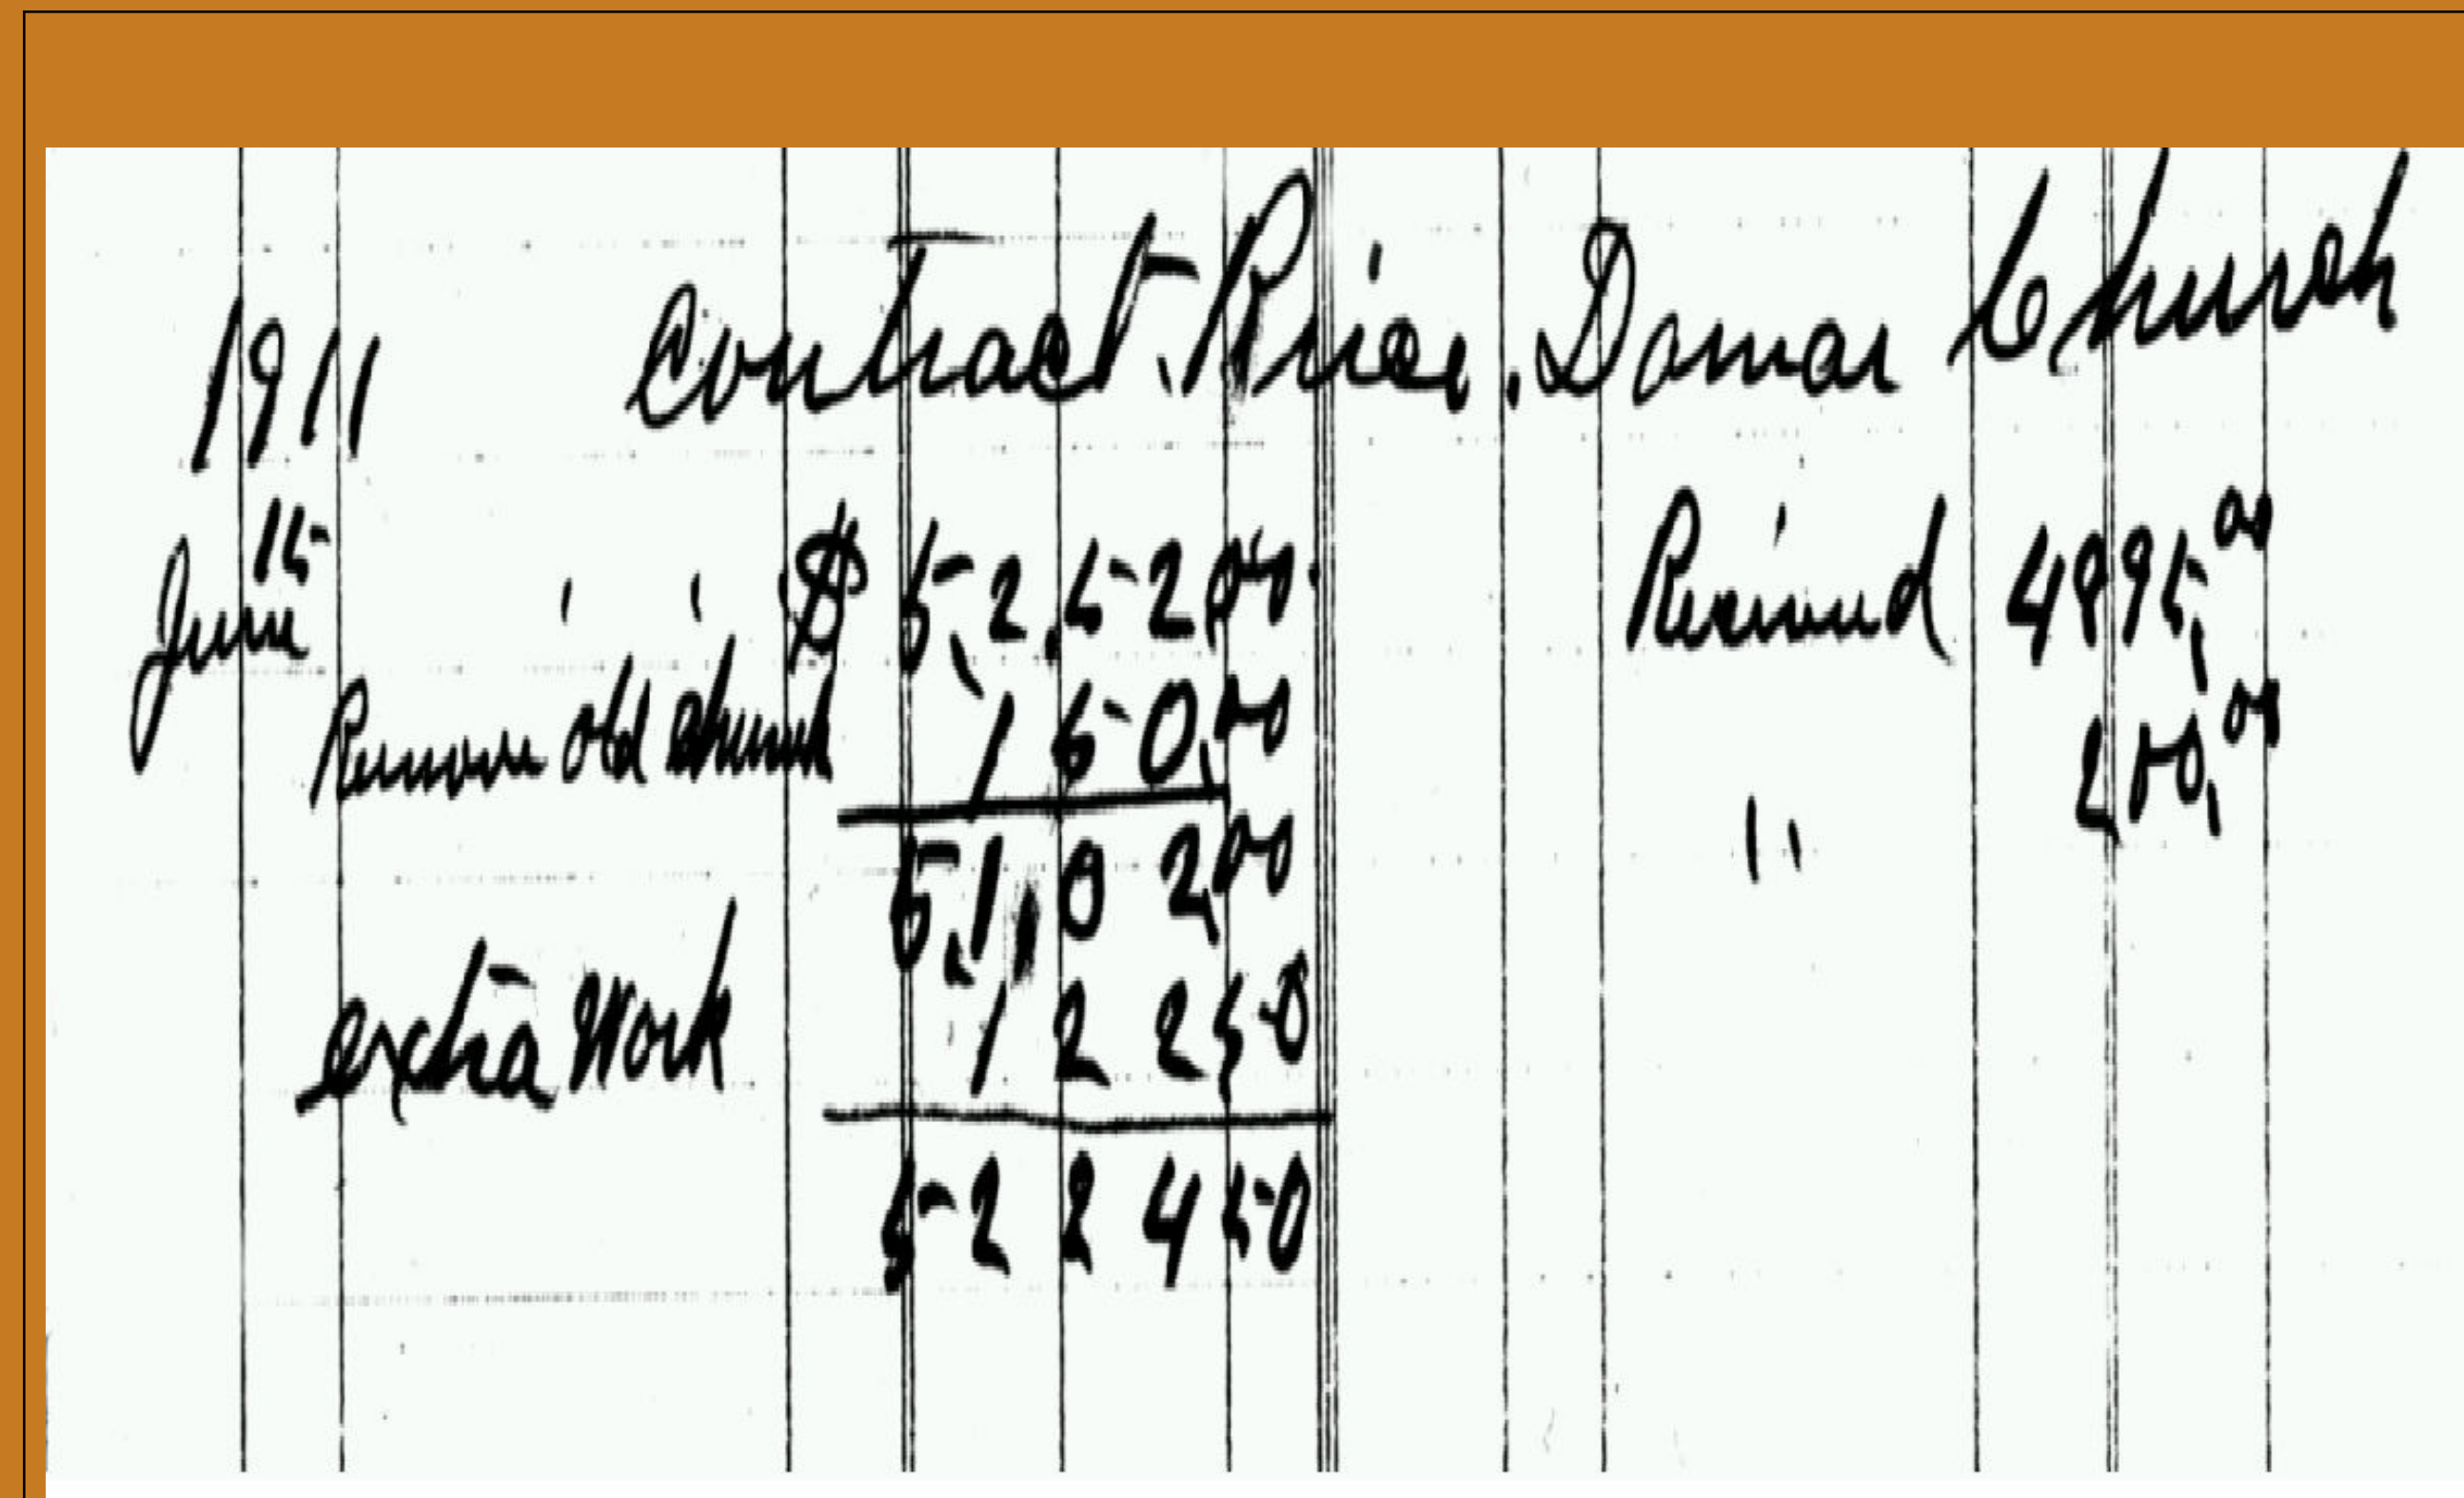 1911 Contract Price. Damar Church
June 15 " " $ 5,252.00 Received 4895.00
Remove old church 150.00 " 200.00
5,102.00
extra Work 122 50
5224 50